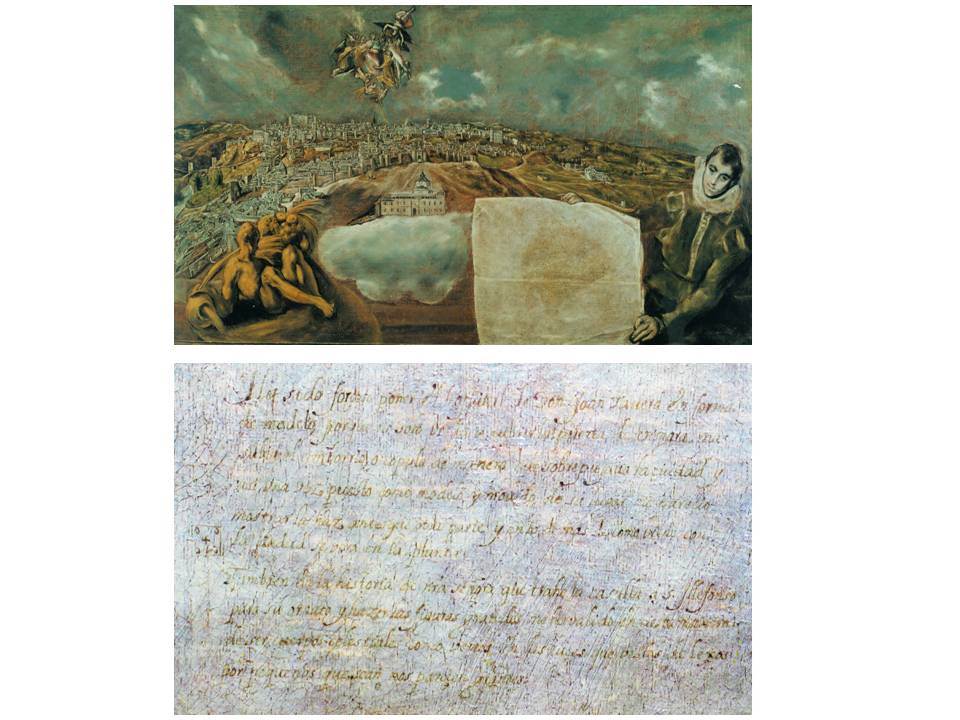 Ha sido forçoso poner el Hospital de Don Joan Tavera en forma
de modelo porque no solo venia a cubrir la puerta mas
subia el cimborrio o cupula de manera que sobrepujava la ciudad y
asi una vez puesto como modelo y movido de su lugar me pareció
mostrar la haz antes que otra parte y en lo demas de como viene con
la ciudad se vera en la planta.
Tambien en la historia de nra señora que trahe la casulla a S. Illefonso
para su ornato y hazer las figuras grandes me he valido en cierta manera
de ser cuerpos celestiales como vemos en las luces que vistas de lexos
por pequeñas que sean nos parecen grandes